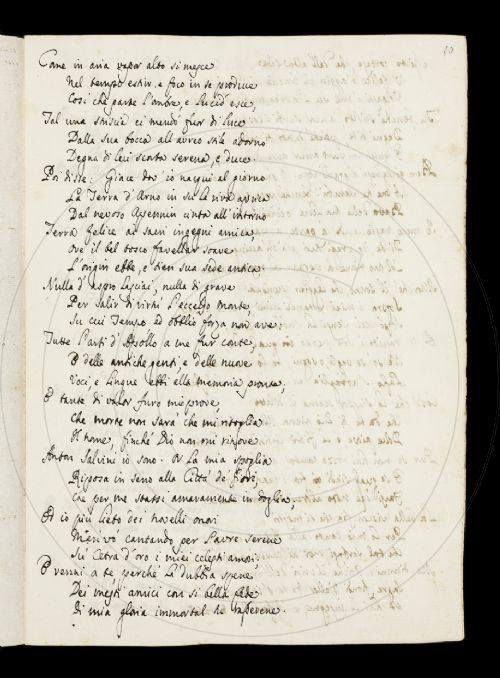 10
Come in aria vapor alto si mesce
Nel tempo estivo, e foco in se produce
Così che parte l'ombre, e lucid' esce,
Tal una striscia ei mandò fuor di luce
Dalla sua bocca all' aureo stile adorno
Degna di lui scorta serena, e duce.
Poi disse: Giace dov' io nacqui al giorno
La Terra d'Arno in su le rive aprica
Dal nevoso Apennin cinta all' intorno
Terra felice ai sani ingegni amica,
Ove il bel tosco favellar soave
L'origin ebbe, e tien sua sede antica.
Nulla d'aspro lasciai, nulla di grave
Per salir di virtù l'eccelso monte,
Su cui Tempo ed obblio forza non ave;
Tutte l'arti d'Apollo a me fur conte,
E delle antiche genti, e delle nuove
Voci, e lingue ebbi alla memoria pronte,
E tante di valor furo mie prove,
Che morte non sarà che mi ritoglia
Il nome, finchè Dio non mi rinnove
Anton Salvini io sono. Or la mia spoglia
Riposa in seno alla Città de' fiori,
Che per me stassi amaramente in doglia,
Ed io più lieto dei novelli onori
Men vò cantando per l'aure serene
Su Cetra d'oro i miei celesti amori;
E venni a te perchè la dubbia spene
Dei mesti amici con sì bella fede
Di mia gloria immortal si rasserene.